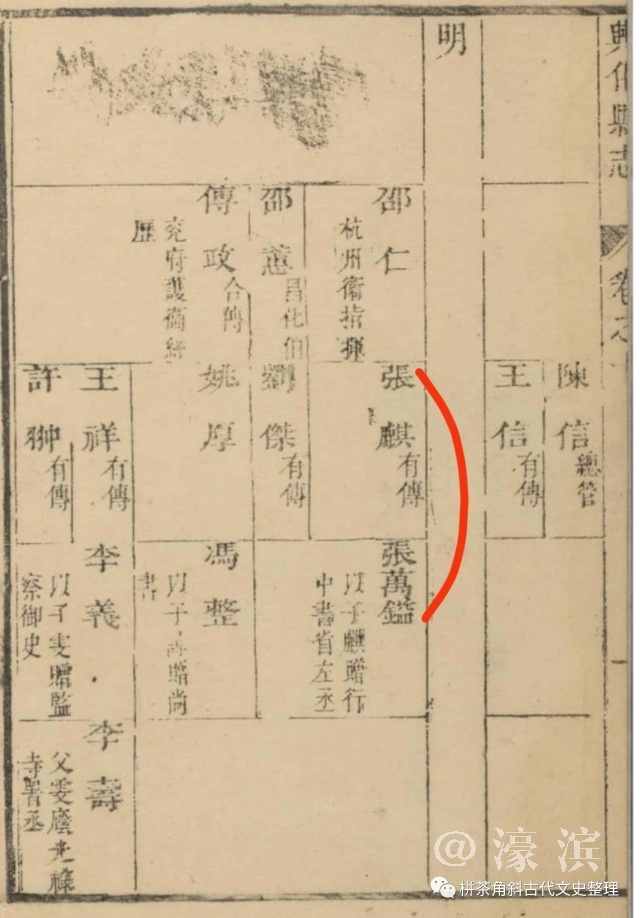 興化縣志
卷之
一
陳信 總管
王信 有傳
明
邵仁 杭州衞指揮
張麒 有傳
張萬鎰
以子麒贈行
中書省左丞
邵 昌化伯
劉傑 有傳
傅政 合傳
兖府護衞經
歷
姚厚
馮整
以子 贈尚
書
王祥 有傳
李義
以子雯贈監
察御史
李壽
父雯廕光祿
寺署丞
許翀 有傳
@濠滨
栟茶角斜古代文史整理